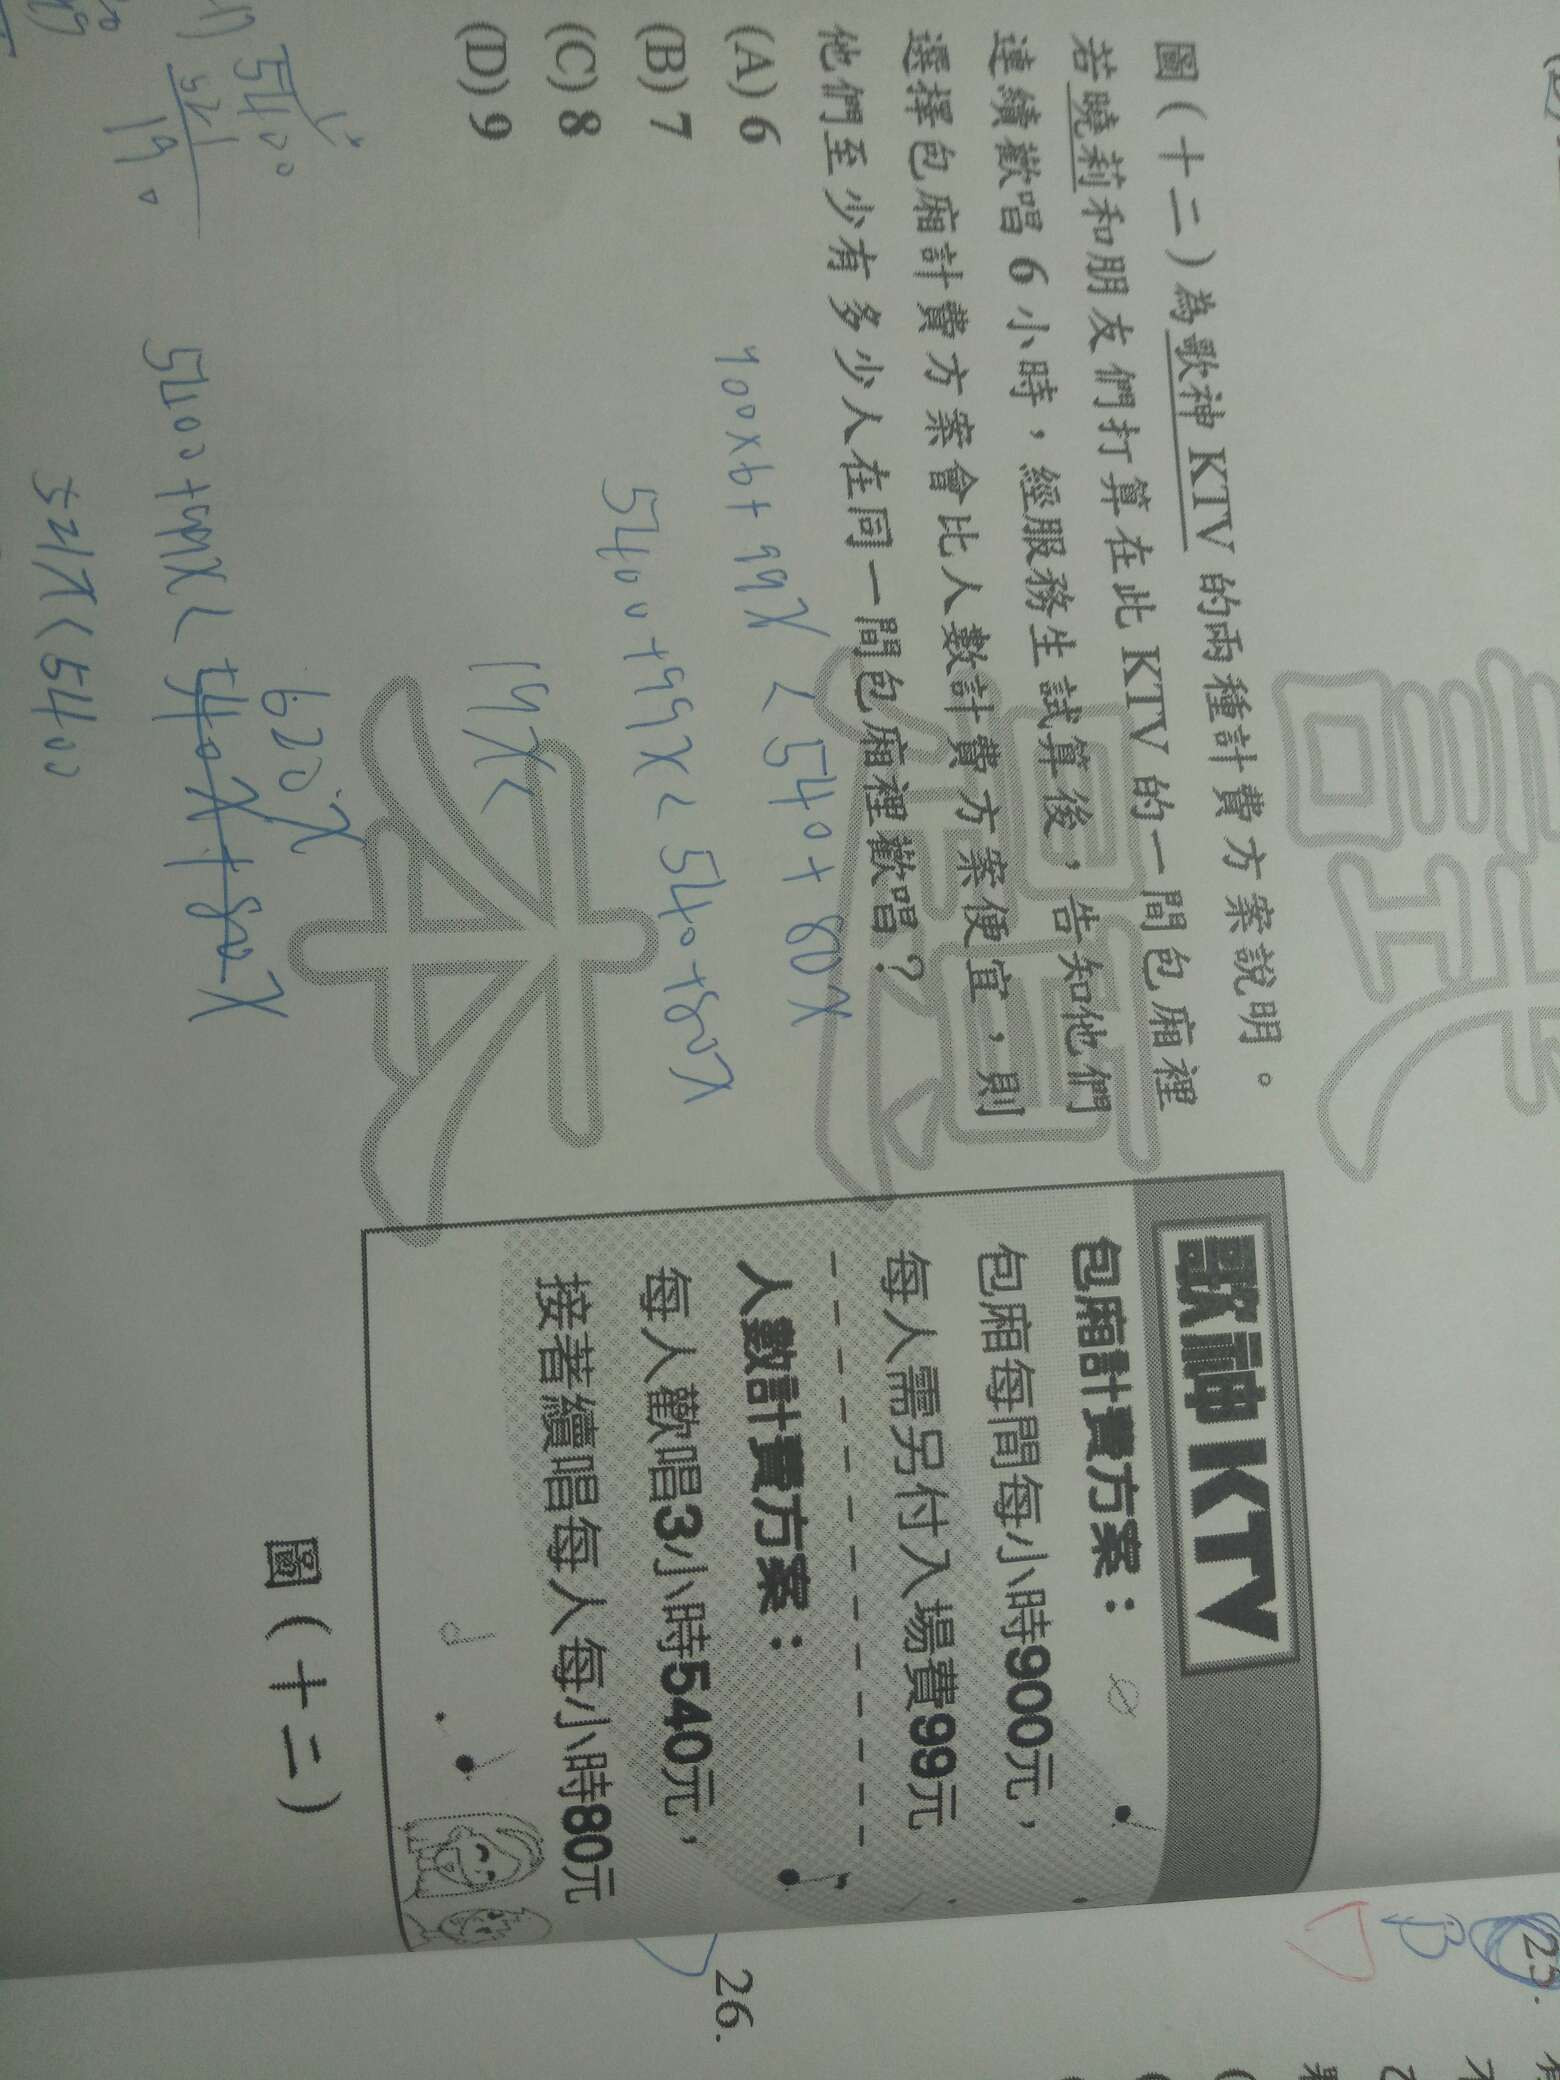 圖(十二)為歌神 KTV 的兩種計費方案說明。
若曉莉和朋友們打算在此 KTV 的一間包廂裡
連續歡唱 6 小時，經服務生試算後，告知他們
選擇包廂計費方案會比人數計費方案便宜，則
他們至少有多少人在同一間包廂裡歡唱？
(A) 6
(B) 7
(C) 8
(D) 9
5400+99x<540+80x
19x<
620x
5400+99x<540x+80x
521x<5400
5400
521
190
試題本
歌神KTV
包廂計費方案：
包廂每間每小時900元，
每人需另付入場費99元
人數計費方案：
每人歡唱3小時540元，
接著續唱每人每小時80元
圖(十二)
25.
B
26.